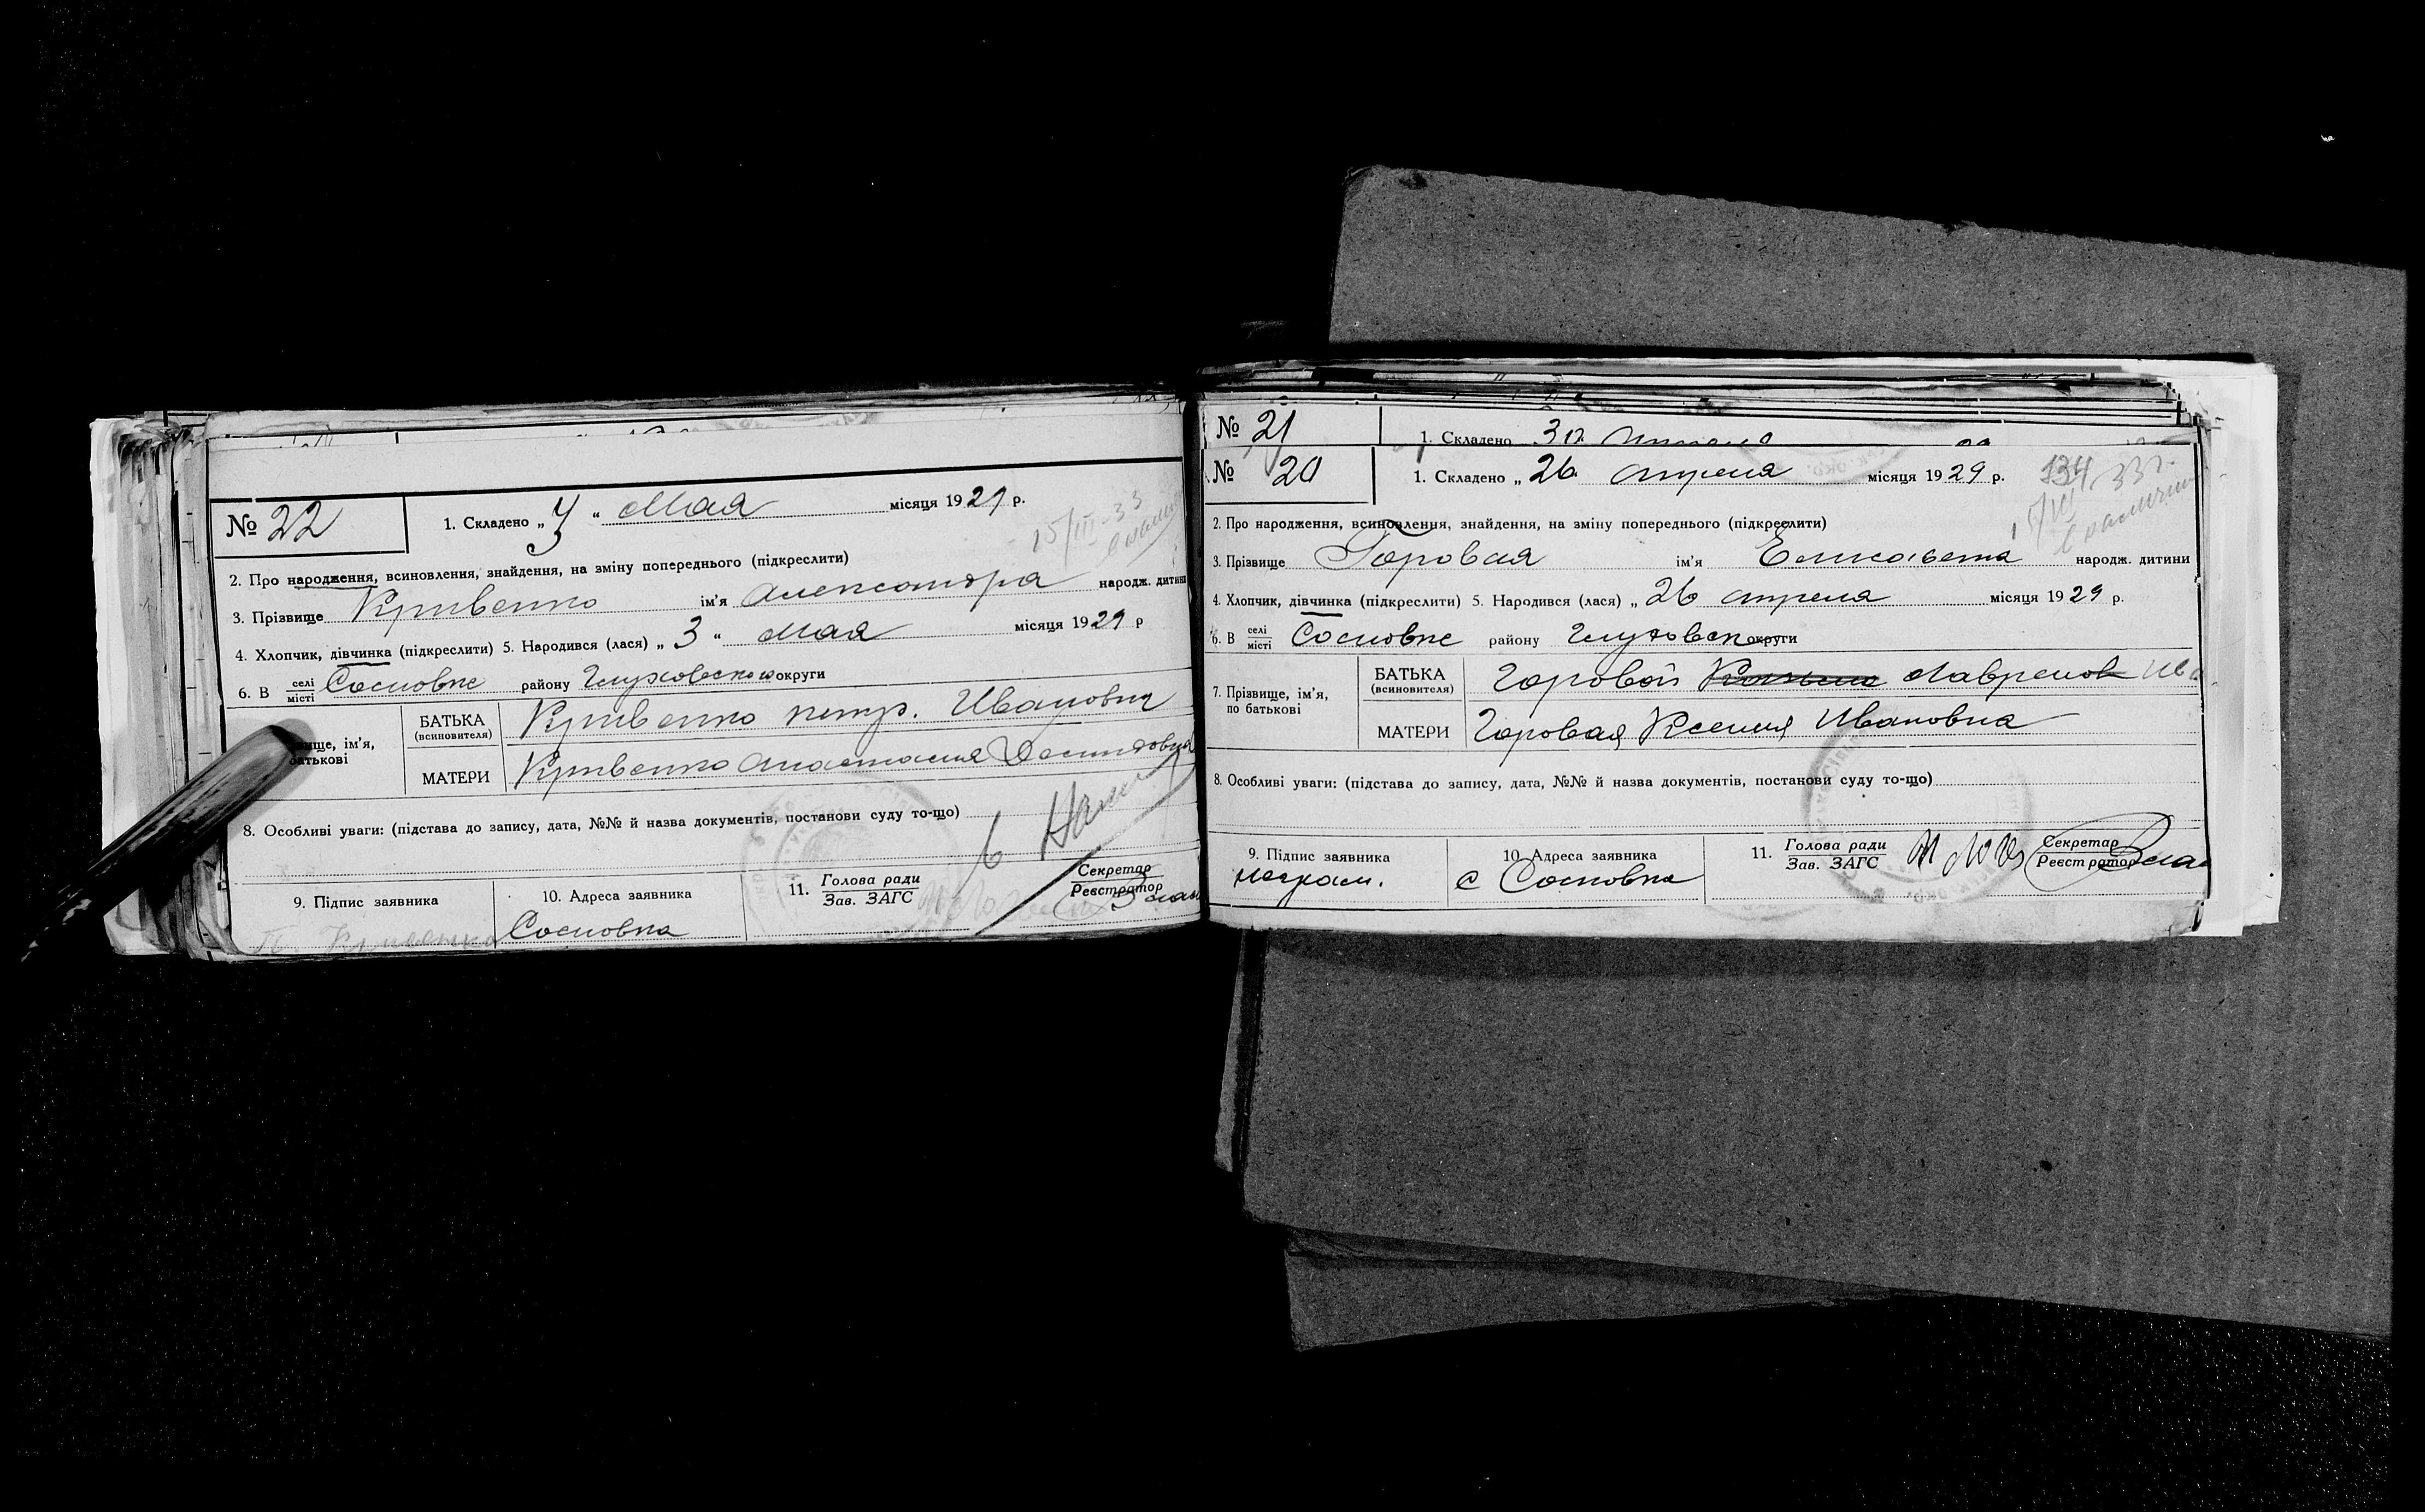 № 22
1. Складено „ 3 “ Мая місяця 1929 р.
15/III-33
2. Про народження, всиновлення, знайдення, на зміну попереднього (підкреслити)
3. Прізвище Кривенко ім'я Александра народж. дитини
4. Хлопчик, дівчинка (підкреслити) 5. Народився (лася) „ 3 “ Мая місяця 1929 р
6. В селі місті Сосновке району Глуховского округи
БАТЬКА (всиновителя) Кривенко петр. Иванович
вище, ім'я, батькові
МАТЕРИ Кривенко Анастасия
8. Особливі уваги: (підстава до запису, дата, №№ й назва документів, постанови суду то-що)
9. Підпис заявника
Кривенко
10. Адреса заявника
Сосновка
11. Голова ради
Зав. ЗАГС
Секретар
Реєстратор
№ 21
1. Складено 30
№ 20
1. Складено „ 26 апреля місяця 1929 р.
134
33г.
2. Про народження, всиновлення, знайдення, на зміну попереднього (підкреслити)
3. Прізвище Горовая ім'я Елисавета народж. дитини
4. Хлопчик, дівчинка (підкреслити) 5. Народився (лася) „ 26 апреля місяця 1929 р.
6. В селі місті Сосновке району Глуховск округи
7. Прізвище, ім'я, по батькові
БАТЬКА (всиновителя) Горовой Лавренов
МАТЕРИ Горовая Ксения Ивановна
8. Особливі уваги: (підстава до запису, дата, №№ й назва документів, постанови суду то-що)
9. Підпис заявника
неграм.
10. Адреса заявника
с Сосновка
11. Голова ради
Зав. ЗАГС
Секретар
Реєстратор